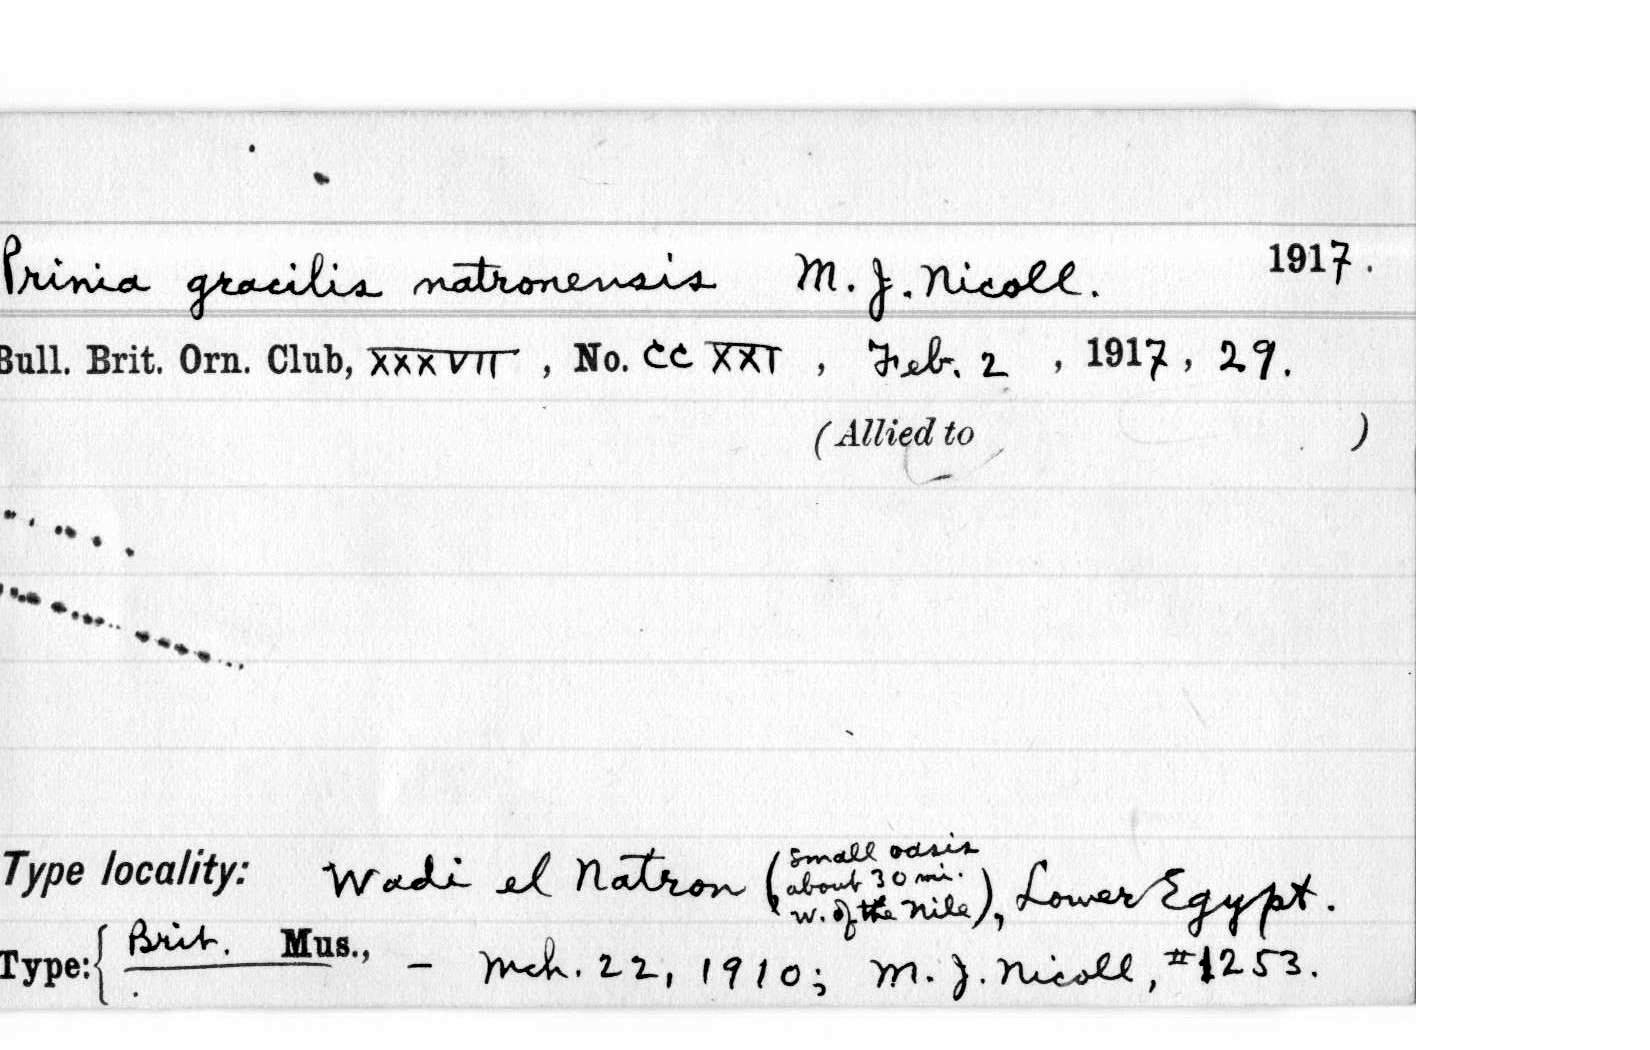 Prinia gracilis natronensis M. J. Nicoll. 1917.
Bull. Brit. Orn. Club, XXXVII, No. CCXXI, Feb. 2, 1917, 29.
(Allied to )
Type locality: Wadi el Natron (small oasis about 30 mi. w. of the Nile), Lower Egypt.
Type: { Brit. Mus., – Mch. 22, 1910; M. J. Nicoll, #1253.